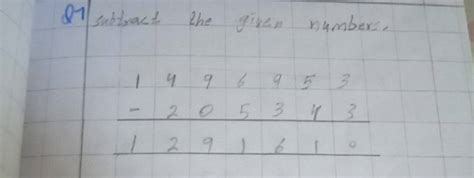 Q1 subtract the given number.
1 4 9 6 9 5 3
- 2 0 5 3 4 3
1 2 9 1 6 1 0